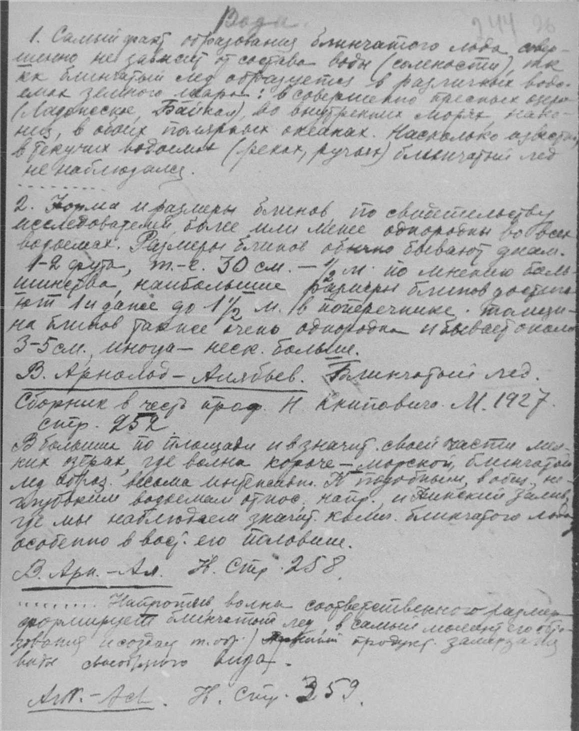 Вода.
244 96
1. Самый факт образования блинчатого льда совер-
шенно не зависит от состава воды (солености), так
как блинчатый лед образуется в различных водо-
емах земного шара: в совершенно пресных озерах
(Ладожское, Байкал), во внутренних морях, нако-
нец, в обоих полярных океанах. Насколько известно
в текучих водоемах (реках, ручьях) блинчатый лед
не наблюдался.
2. Форма и размеры блинов по свидетельству
исследователей, более или менее однородны во всех
водоемах. Размеры блинов обычно бывают диам.
1-2 фута, т.-е. 30 см. – ½ м. по мнению боль-
шинства, наибольшие размеры блинов достига-
ют 1 и далее до 1½ м. в поперечнике. Толщи-
на блинов также очень однородна и бывает около
3-5 см., иногда – неск. больше.
В. Арнольд-Алябьев. Блинчатый лед.
Сборник в честь проф. Н. Книповича. М. 1927.
стр. 252
В больших по площади и в значит. своей части мел-
ких озерах, где волна короче – морской, блинчатый
лед образ. весьма интенсивн. К подобным, в общ., не-
глубоким водоемам относ. напр. и Финский залив,
где мы наблюдаем значит. колич. блинчатого льда
особенно в вост. его половине.
В. Арн.-Ал. Н. Стр. 258.
........ Напротив волны соответственного размера
формируют блинчатый лед в самый момент его обра-
зования и создая т. обр. продукт замерзания
воды своеобразного вида.
Арн.-Ал. Н. Стр. 359.